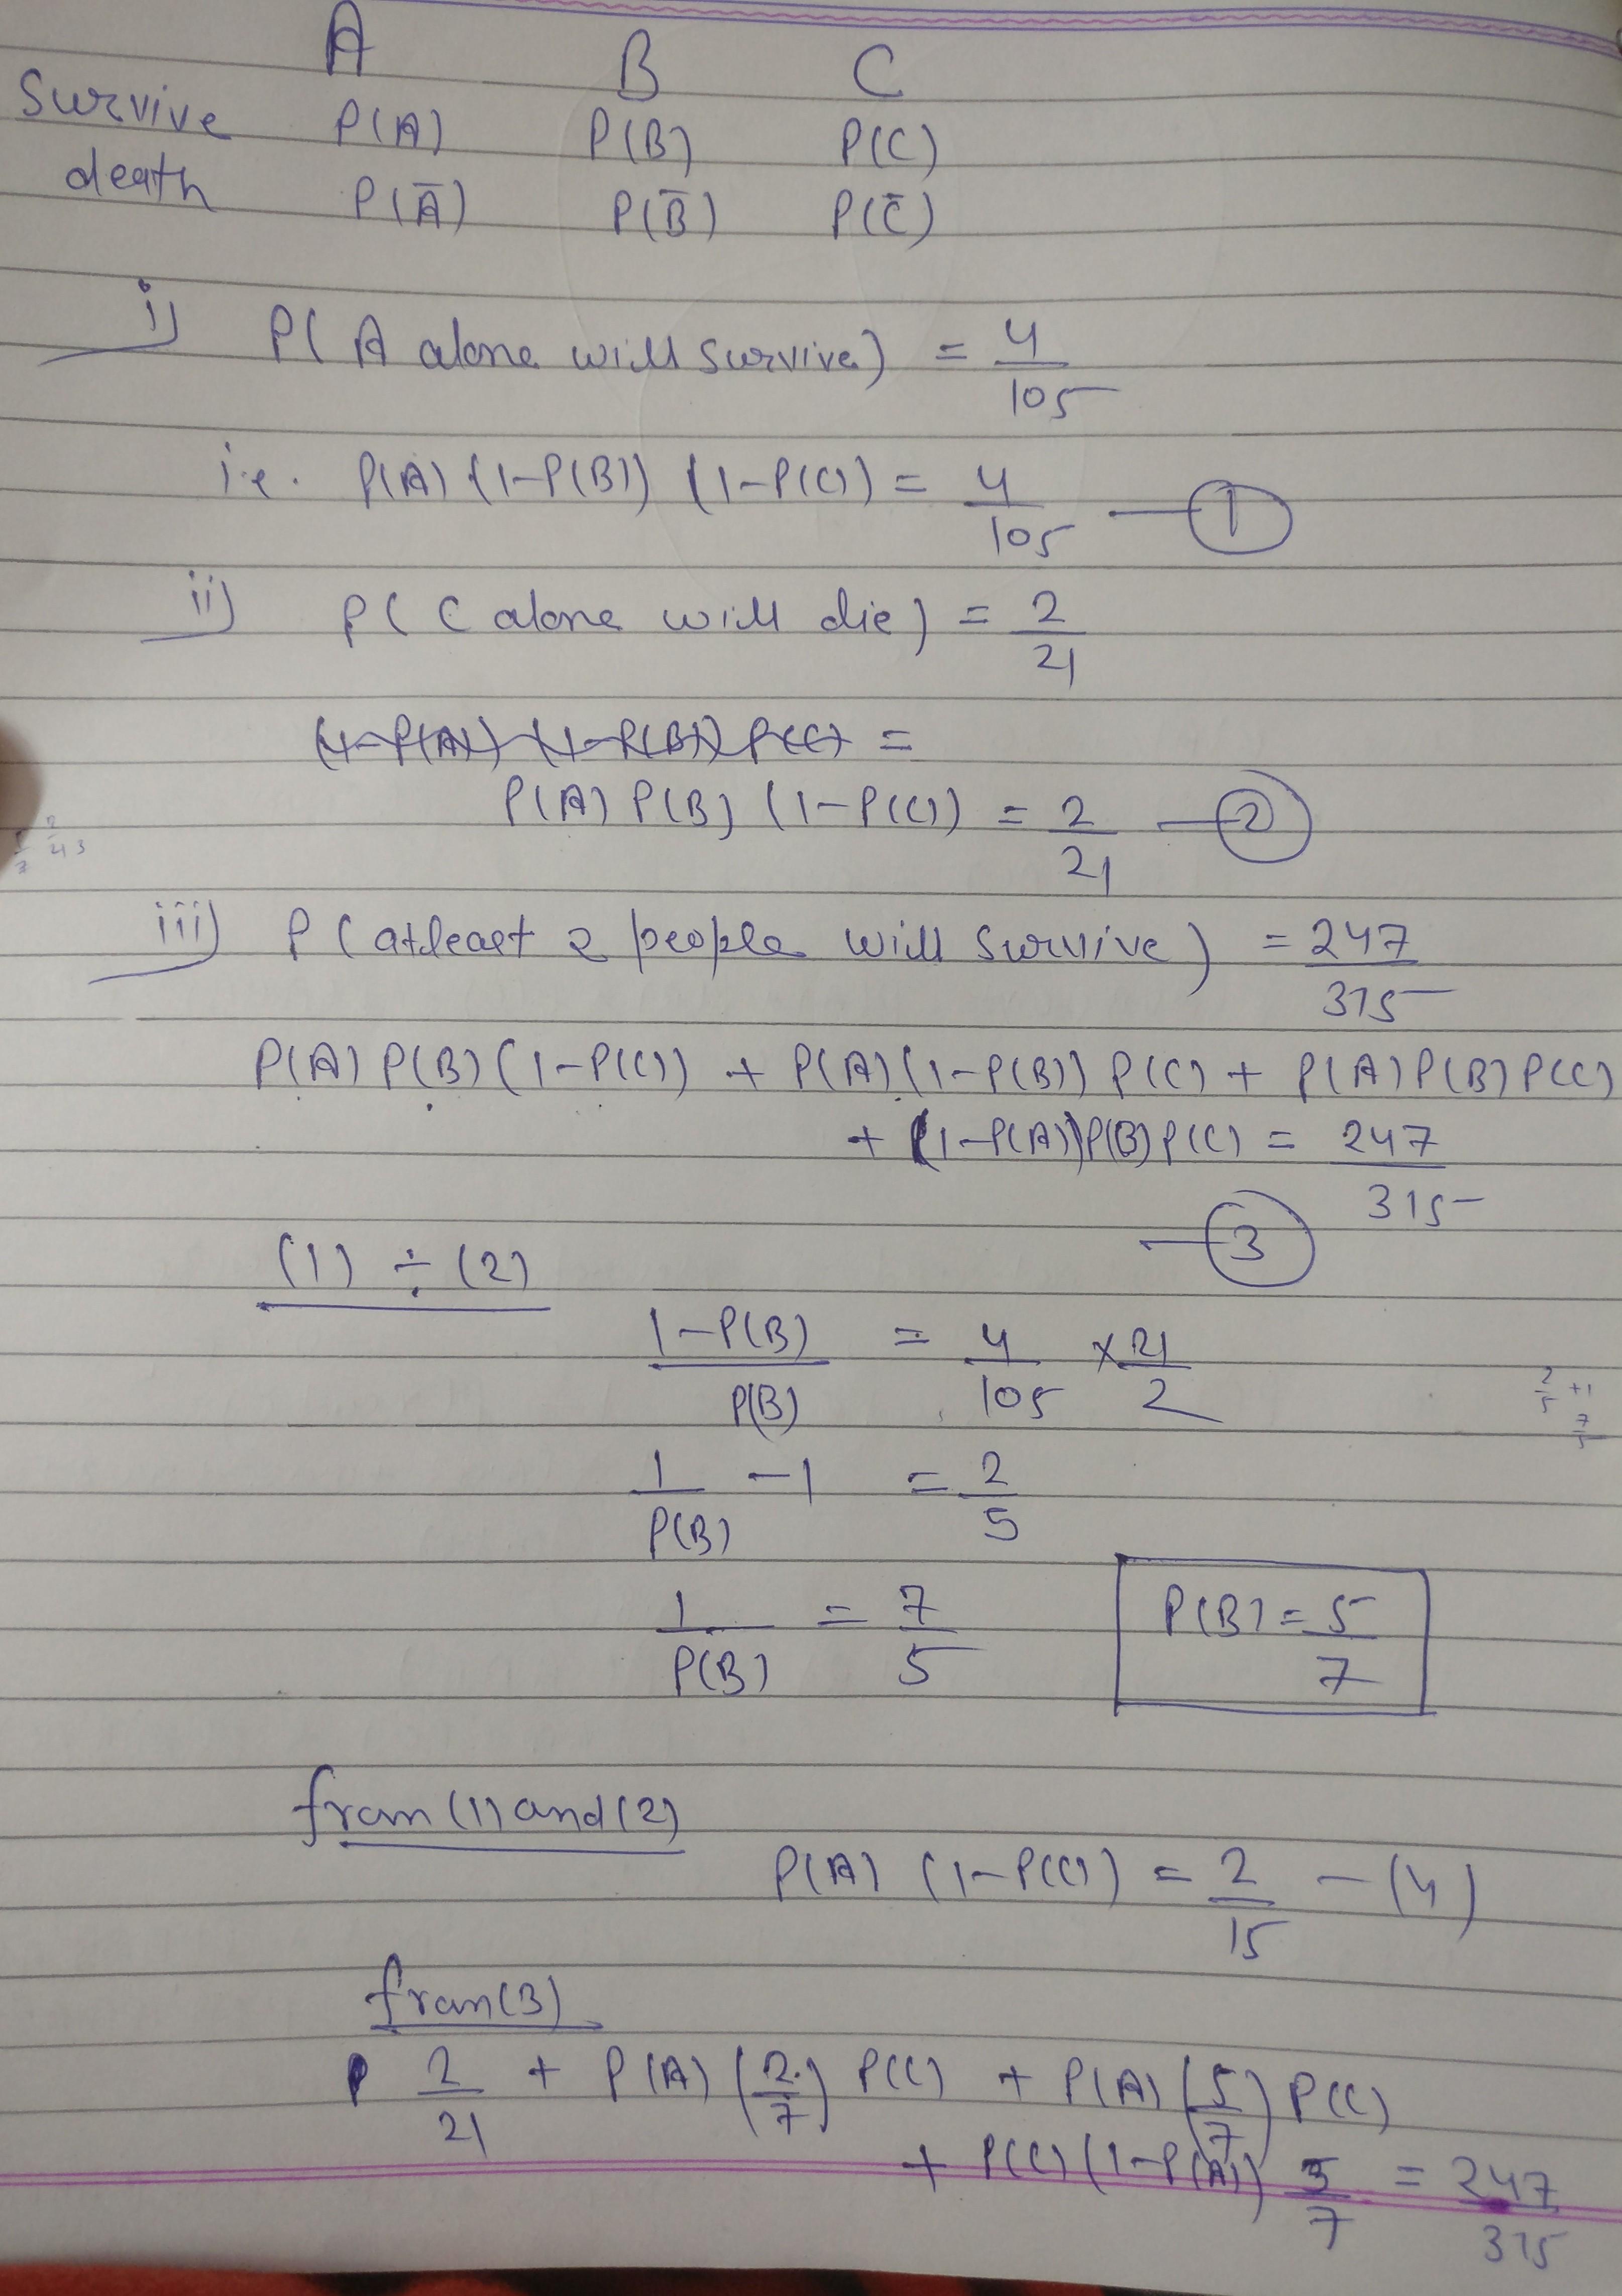 A B C
Survive P(A) P(B) P(C)
death P(Ā) P(B̄) P(C̄)
i) P( A alone will survive) = 4/105
i.e. P(A) (1-P(B)) (1-P(C)) = 4/105 — 1
ii) P( C alone will die) = 2/21
(1-P(A)) (1-P(B)) P(C) =
P(A) P(B) (1-P(C)) = 2/21 — 2
iii) P (atleast 2 people will survive) = 247/315
P(A) P(B) (1-P(C)) + P(A) (1-P(B)) P(C) + P(A) P(B) P(C)
+ (1-P(A)) P(B) P(C) = 247/315
— 3
(1) ÷ (2)
1-P(B)/P(B) = 4/105 × 21/2
2/5 +1
7/5
1/P(B) - 1 = 2/5
1/P(B) = 7/5 P(B) = 5/7
from (1) and (2)
P(A) (1-P(C)) = 2/15 — (4)
from (3)
2/21 + P(A) (2/7) P(C) + P(A) (5/7) P(C)
+ P(C) (1-P(A)) 5/7 = 247/315